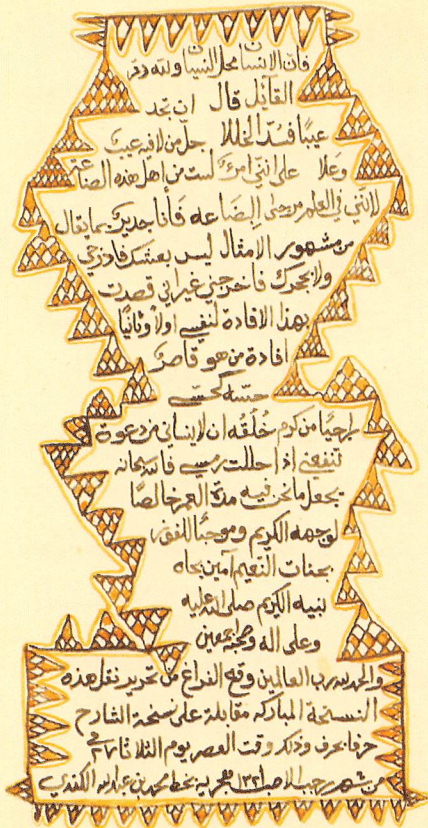 فان الانسان محل النسيان ولله در
القائل قال ان تجد
عيبا فسد الخللا جل من لا فيه عيب
وعلا على انني امرؤ لست من اهل هذه الصناعة
لانني في العلم مزجي البضاعه فأنا جدير بما يقال
من مشهور الامثال ليس بعشك فادرجي
ولا بجحرك فاخرجي غير اني قصدت
بهذا الافادة لنفسي اولا وثانيا
افادة من هو قاصر
حسه كحسي
راجيا من كرم خُلُقه ان لا ينساني من دعوة
تنفعني اذا حللت رمسي فالله سبحانه
يجعل ما نحن فيه مدة العمر خالصا
لوجهه الكريم وموجبا للفوز
بجنات النعيم آمين بجاه
نبيه الكريم صلى الله عليه
وعلى اله وصحبه اجمعين
والحمد لله رب العالمين وقع الفراغ من تحرير نقل هذه
النسخة المباركة مقابلة على نسخة الشارح
حرفا بحرف وذلك وقت العصر يوم الثلاثا
من شهر رجب الاصب ١٣٢١ هجرية بخط محمد بن عبد الله الكندي